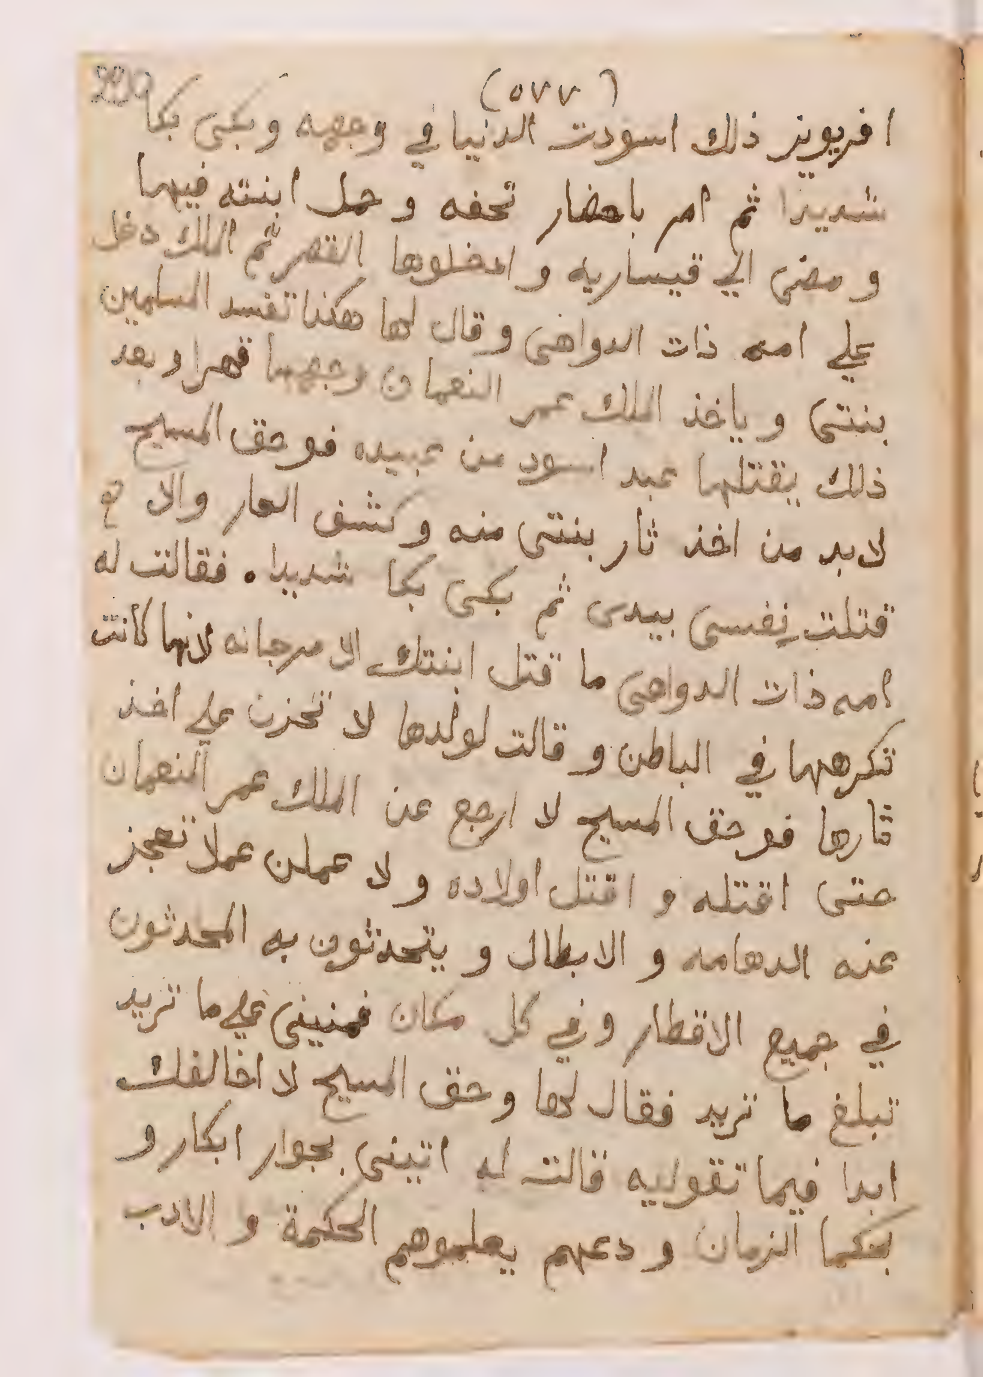 290
(٥٧٧)
افريويز ذلك اسودت الدنيا في وجهه وبكى بكا
شديدا ثم امر باحضار تحفه وحمل ابنته فيها
ومضى الي قيساريه وادخلوها القصر ثم الملك دخل
علي امه ذات الدواهى وقال لها هكذا تفسد المسلمين
بنتى وياخذ الملك عمر النعمان وجهها قهرا وبعد
ذلك يقتلها عبد اسود من عبيده فوحق المسيح
لابد من اخذ ثار بنتى منه وكشف العار والا
قتلت نفسى بيدى ثم بكى بكا شديدا . فقالت له
امه ذات الدواهى ما قتل ابنتك الا مرجانه لانها كانت
تكرهها في الباطن وقالت لولدها لا تحزن علي اخذ
ثارها فوحق المسيح لا ارجع عن الملك عمر النعمان
حتى اقتله و اقتل اولاده ولا عملن عملا تعجز
عنه الدهامه و الابطال و يتحدثون به المحدثون
في جميع الاقطار وفي كل مكان علي ما تريد
تبلغ ما تريد فقال لها وحق المسيح لا اخالفك
ابدا فيما تقوليه قالت له اتينى بجوار ابكار و
بحكما الزمان و دعهم يعلموهم الحكمة و الادب